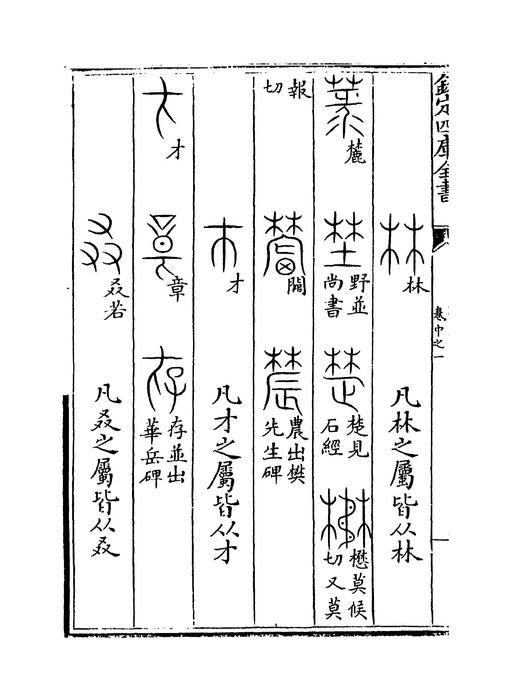 欽定四庫全書
卷中之一
林 凡林之屬皆从林
麓 野並尚書 楚見石經 懋莫候切又莫
報切 闗 農出樊先生碑
才 凡才之屬皆从才
才 章 存並出華岳碑
叒若 凡叒之屬皆从叒